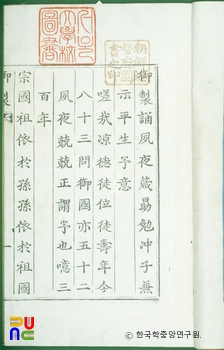 御製誦夙夜箴勗勉冲子兼
示平生予意
嗟哉涼德徒位徒壽年今
八十三問御國亦五十二
夙夜兢兢正謂予也噫三
百年
宗國祖依於孫孫依於祖國
御製
一
© 한국학중앙연구원